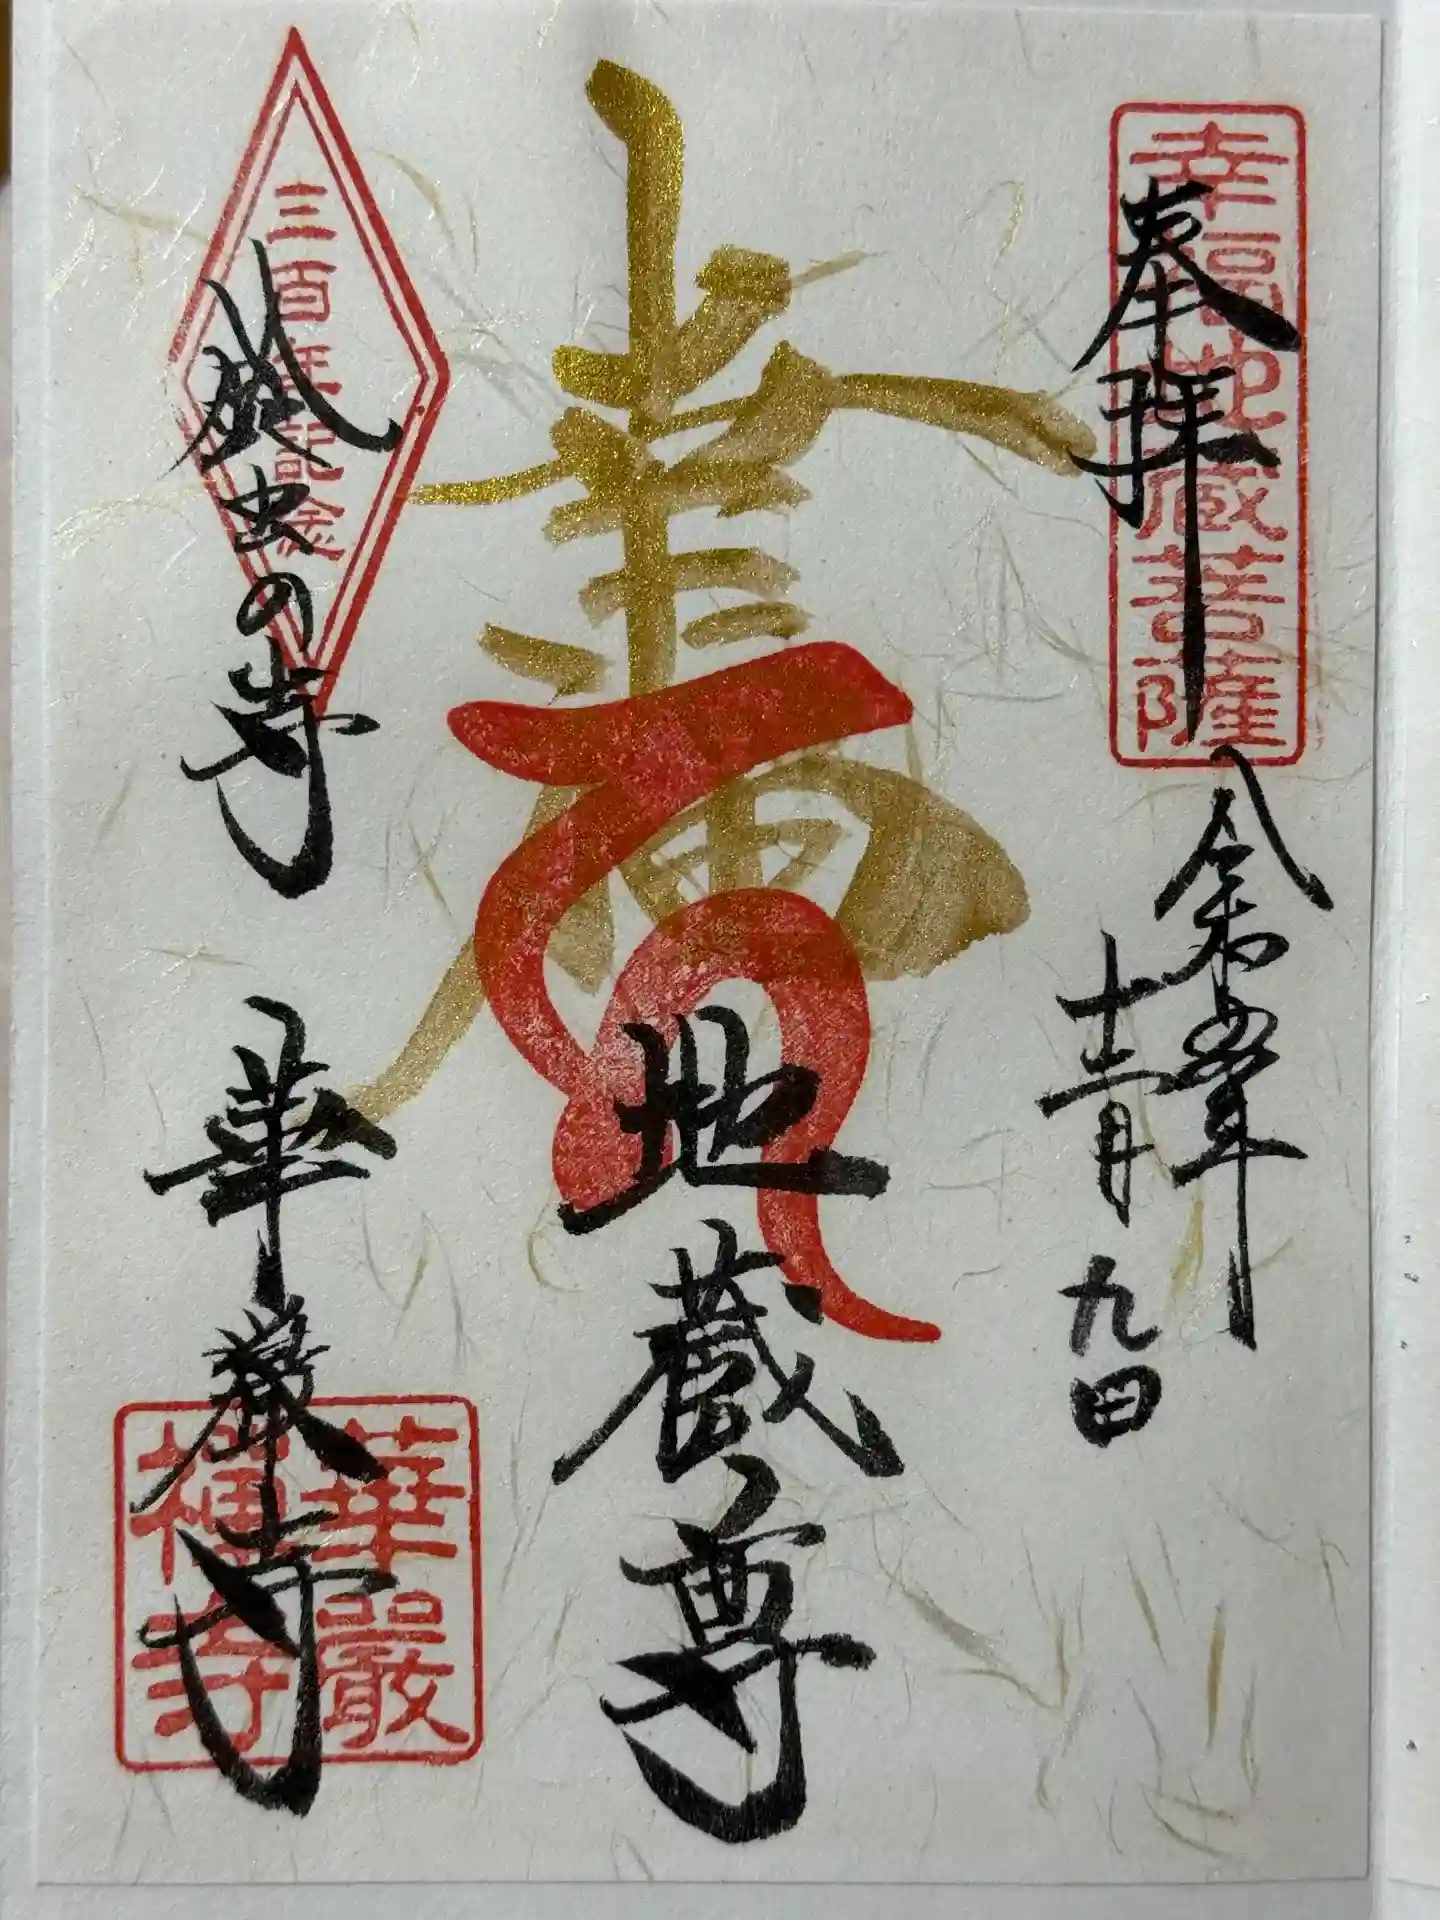 奉拝
幸福地蔵菩薩
令和五年
十二月
九日
壽
地蔵尊
三百年記念
鈴虫の寺
華厳寺
華嚴
禅寺